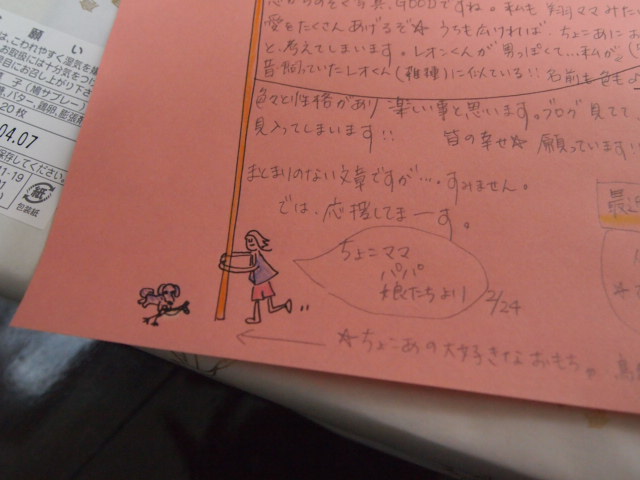 願い
は、こわれやすく湿気を
お取扱には十分気をつ
お召し上り下さ
(鳩サブレー)
バター、鶏卵、膨張剤
20枚
04.07
保存してください。
11-19
紙
包装紙
GOODですね。私も 翔ママみた
愛をたくさんあげるぞ☆ うちも広ければ、ちょこあに
と考えてしまいます。レオンくんが男っぽくて…私が
昔飼っていたレオくん(雑種)に似ている!! 名前も色も
色々と性格があり 楽しい事と思います。ブログ見てて
見入ってしまいます!! 皆の幸せ☆ 願っています!!
まとまりのない文章ですが…。すみません。
では、応援してまーす。
ちょこママ
パパ
娘たちより
2/24
☆ちょこあの大好きなおもちゃ
最近